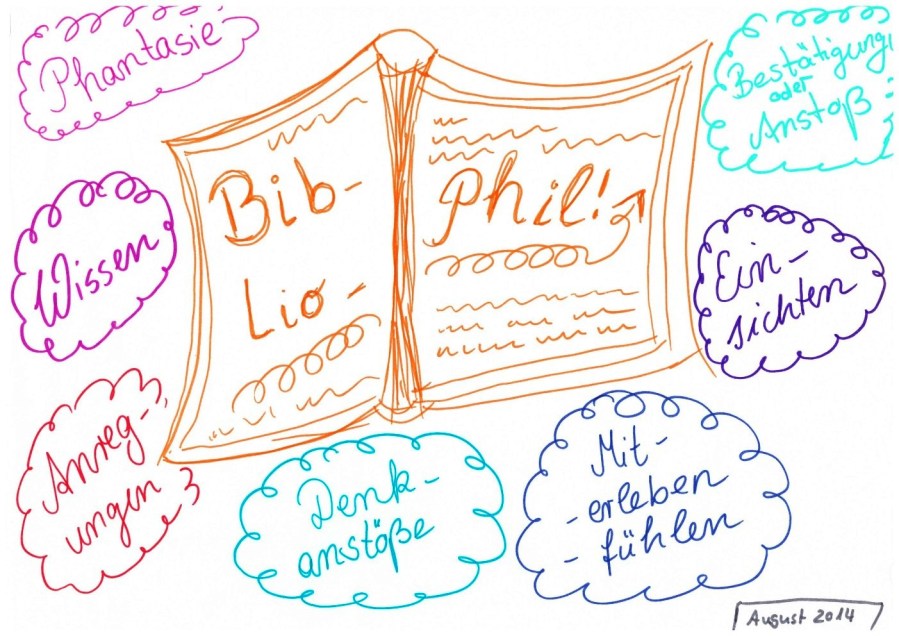 Phantasie
Bestätigung
oder
Anstoß
Bib-
Lio-
Phil!
Wissen
Ein-
sichten
Anreg-
ungen
Denk-
anstöße
Mit-
-erleben
-fühlen
August 2014